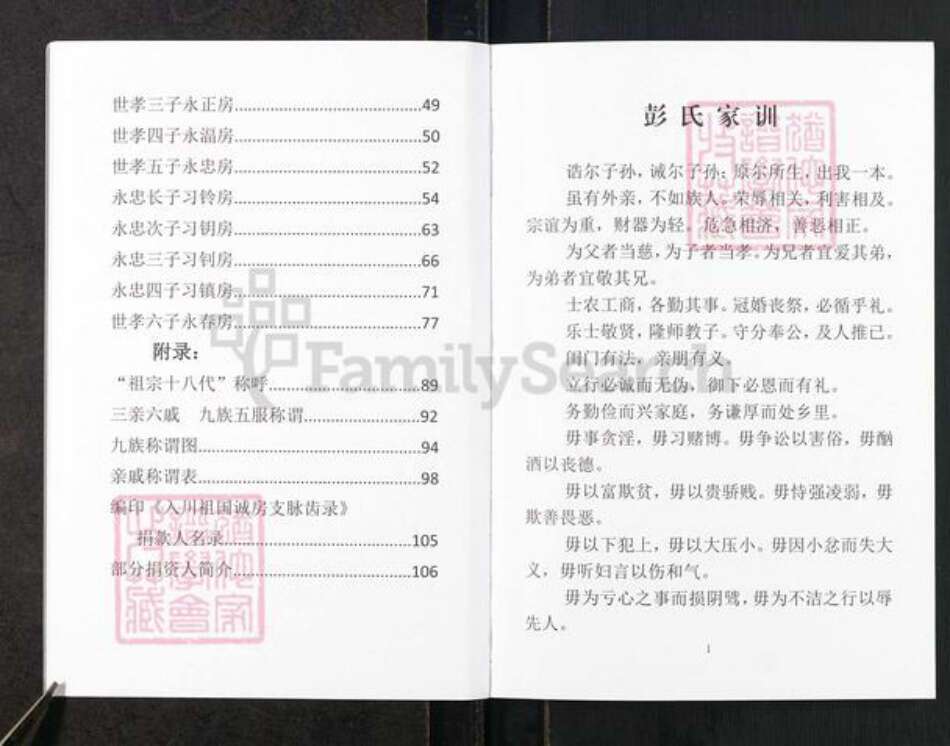 世孝三子永正房......49
世孝四子永温房......50
世孝五子永忠房......52
永忠长子习铃房......54
永忠次子习钥房......63
永忠三子习钊房......66
永忠四子习镇房......71
世孝六子永春房......77
附录：
“祖宗十八代”称呼......89
三亲六戚 九族五服称谓......92
九族称谓图......94
亲戚称谓表......98
编印《入川祖国诚房支脉齿录》
捐款人名录......105
部分捐资人简介......106
彭氏家训
诰尔子孙，诫尔子孙：原尔所生，出我一本。
虽有外亲，不如族人。荣辱相关，利害相及。
宗谊为重，财器为轻。危急相济，善恶相正。
为父者当慈，为子者当孝。为兄者宜爱其弟，
为弟者宜敬其兄。
士农工商，各勤其事。冠婚丧祭，必循乎礼。
乐士敬贤，隆师教子。守分奉公，及人推已。
闺门有法，亲朋有义。
立行必诚而无伪，御下必恩而有礼。
务勤俭而兴家庭，务谦厚而处乡里。
毋事贪淫，毋习赌博。毋争讼以害俗，毋酗
酒以丧德。
毋以富欺贫，毋以贵骄贱。毋恃强凌弱，毋
欺善畏恶。
毋以下犯上，毋以大压小。毋因小忿而失大
义，毋听妇言以伤和气。
毋为亏心之事而损阴骘，毋为不洁之行以辱
先人。
1
FamilySearch